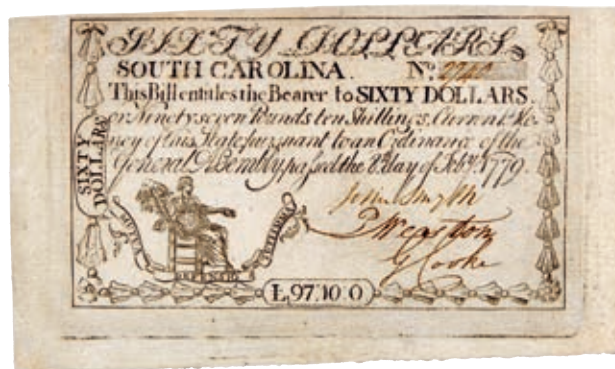 SIXTY DOLLARS
SOUTH CAROLINA. No. 2740
This Bill entitles the Bearer to SIXTY DOLLARS.
or Ninety seven Pounds ten Shillings, Current Mo-
ney of this State pursuant to an Ordinance of the
General Assembly passed the 8th day of Feby. 1779.
SIXTY
DOLLARS
John Smyth
P Weston
G Cooke
Ł97.10 0